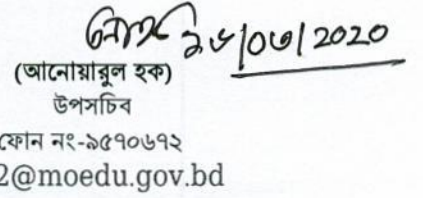 ১৬/০৩/২০২০
(আনোয়ারুল হক)
উপসচিব
ফোন নং-৯৫৭০৬৭২
2@moedu.gov.bd